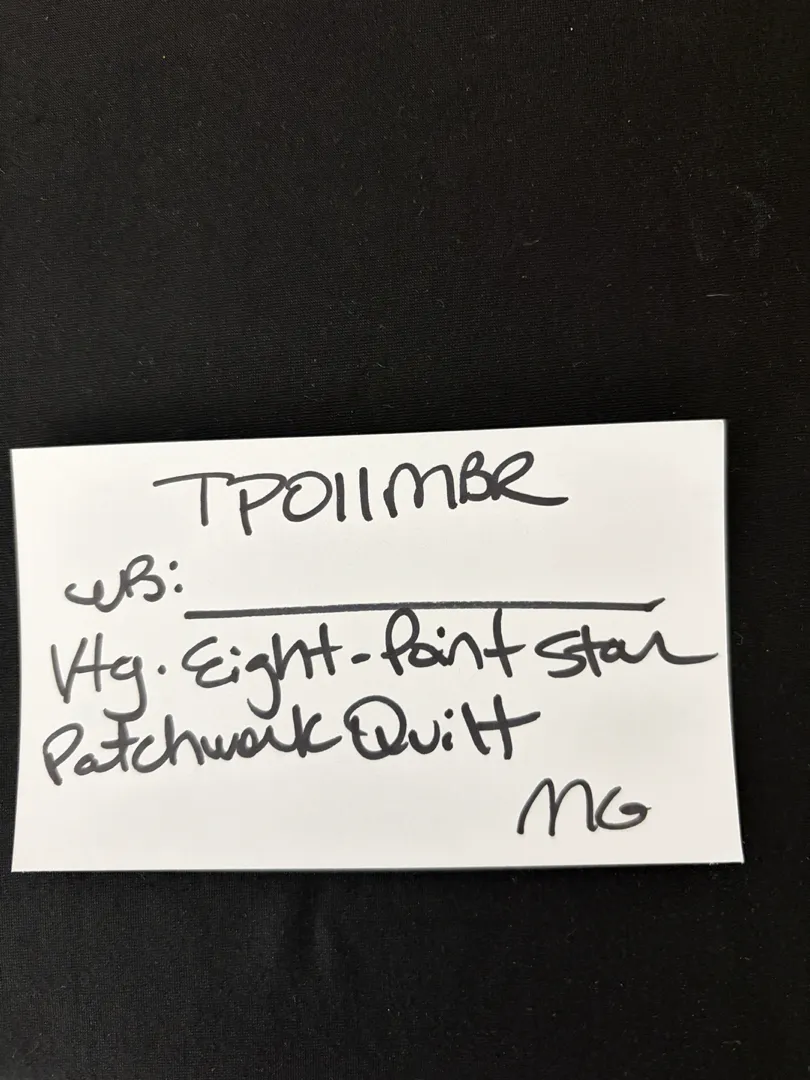 TP011MBR
WB:
Vtg. Eight-Point Star
Patchwork Quilt
MG